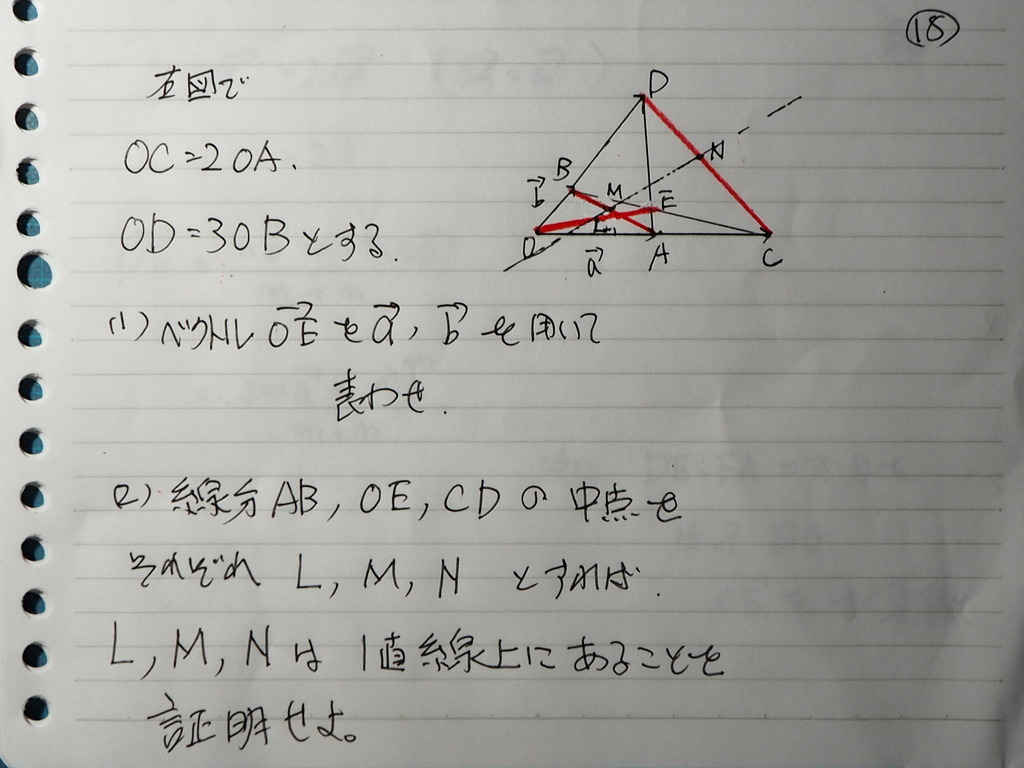 ⑱
右図で
OC=2OA.
OD=3OBとする.
D
N
B
M
E
b
O
L
a
A
C
(1) ベクトルOEをa, bを用いて
表わせ.
(2) 線分AB, OE, CDの中点を
それぞれ L, M, N とすれば.
L, M, N は 1直線上にあることを
証明せよ。